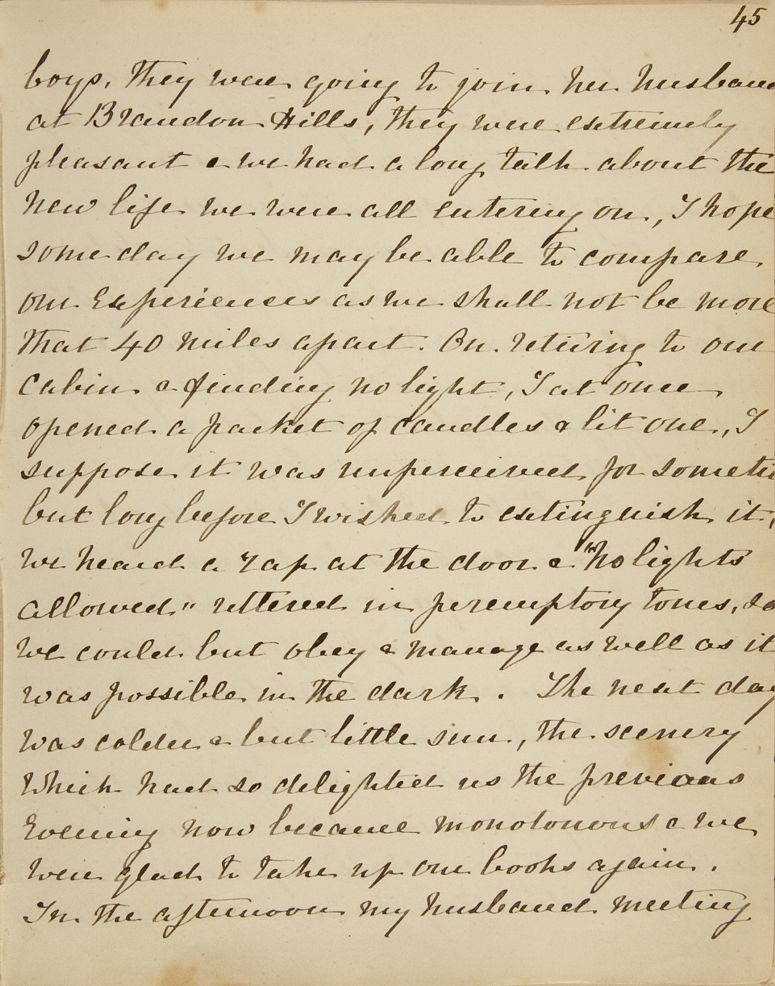 45
boys. They were going to join her husband
at Brandon Hills, they were extremely
pleasant & we had a long talk about the
new life we were all entering on, I hope
some day we may be able to compare
our experiences as we shall not be more
that 40 miles apart. On retiring to our
cabin & finding no light, I at once
opened a packet of candles & lit one, I
suppose it was unperceived for someti
but long before I wished to extinguish it,
we heard a rap at the door & "No lights
allowed" uttered in peremptory tones, so
we could but obey & manage as well as it
was possible in the dark. The next day
was colder & but little sun, the scenery
which had so delighted us the previous
Evening now became monotonous & we
were glad to take up our books again.
In the afternoon my husband meeting